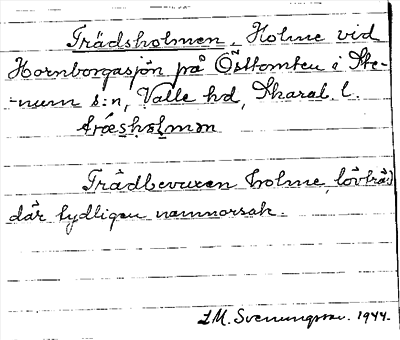 Trädsholmen, Holme vid
Hornborgasjön på Östtomten i Ste-
-num s:n, Valle hd, Skarab. l.
træsholmən
Trädbevuxen holme, lövträd
där tydligen namnorsak.
I.M. Svenungsson. 1944.